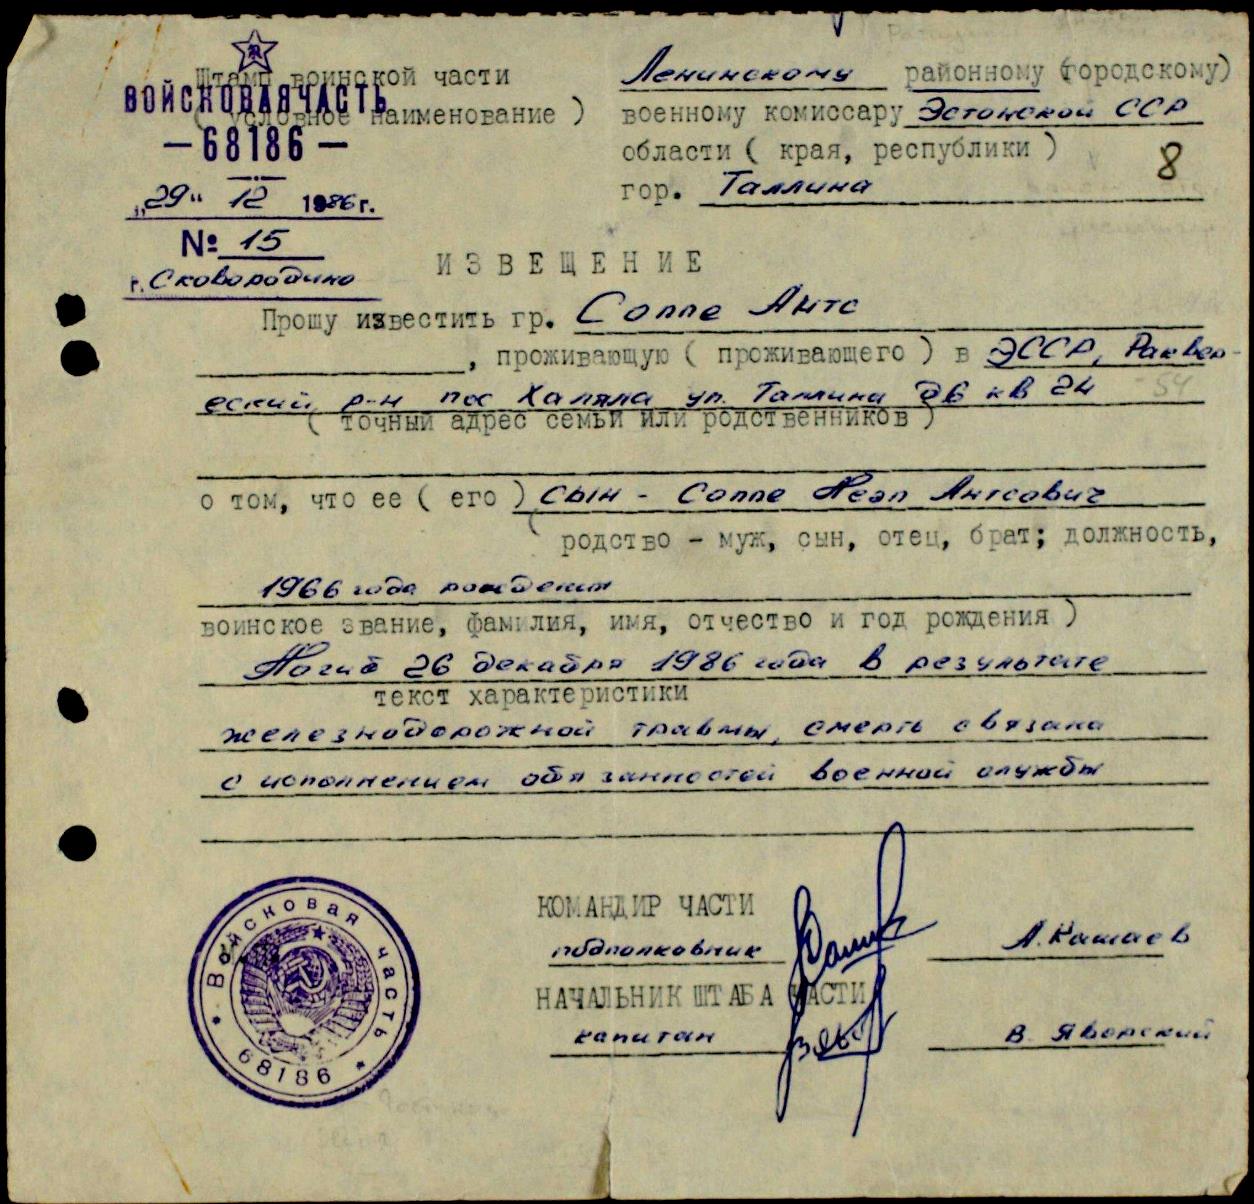 Штамп воинской части
ВОЙСКОВАЯ ЧАСТЬ
( условное наименование )
— 68186 —
„29" 12 1986 г.
№ 15
г. Сковородино
Ленинскому районному (городскому)
военному комиссару Эстонской ССР
области ( края, республики )
8
гор. Таллина
ИЗВЕЩЕНИЕ
Прошу известить гр. Соппе Антс
, проживающую ( проживающего ) в ЭССР, Раквер-
еский р-н пос Халяла ул. Таллина д6 кв 24
54
( точный адрес семьи или родственников )
о том, что ее ( его ) сын - Соппе Неэл Антсович
( родство - муж, сын, отец, брат; должность,
1966 года рождения
воинское звание, фамилия, имя, отчество и год рождения )
Погиб 26 декабря 1986 года в результате
текст характеристики
железнодорожной травмы, смерть связана
с исполнением обязанностей военной службы
КОМАНДИР ЧАСТИ
подполковник А. Кашаев
НАЧАЛЬНИК ШТАБА ЧАСТИ
капитан В. Яворский
Войсковая часть
* 68186 *